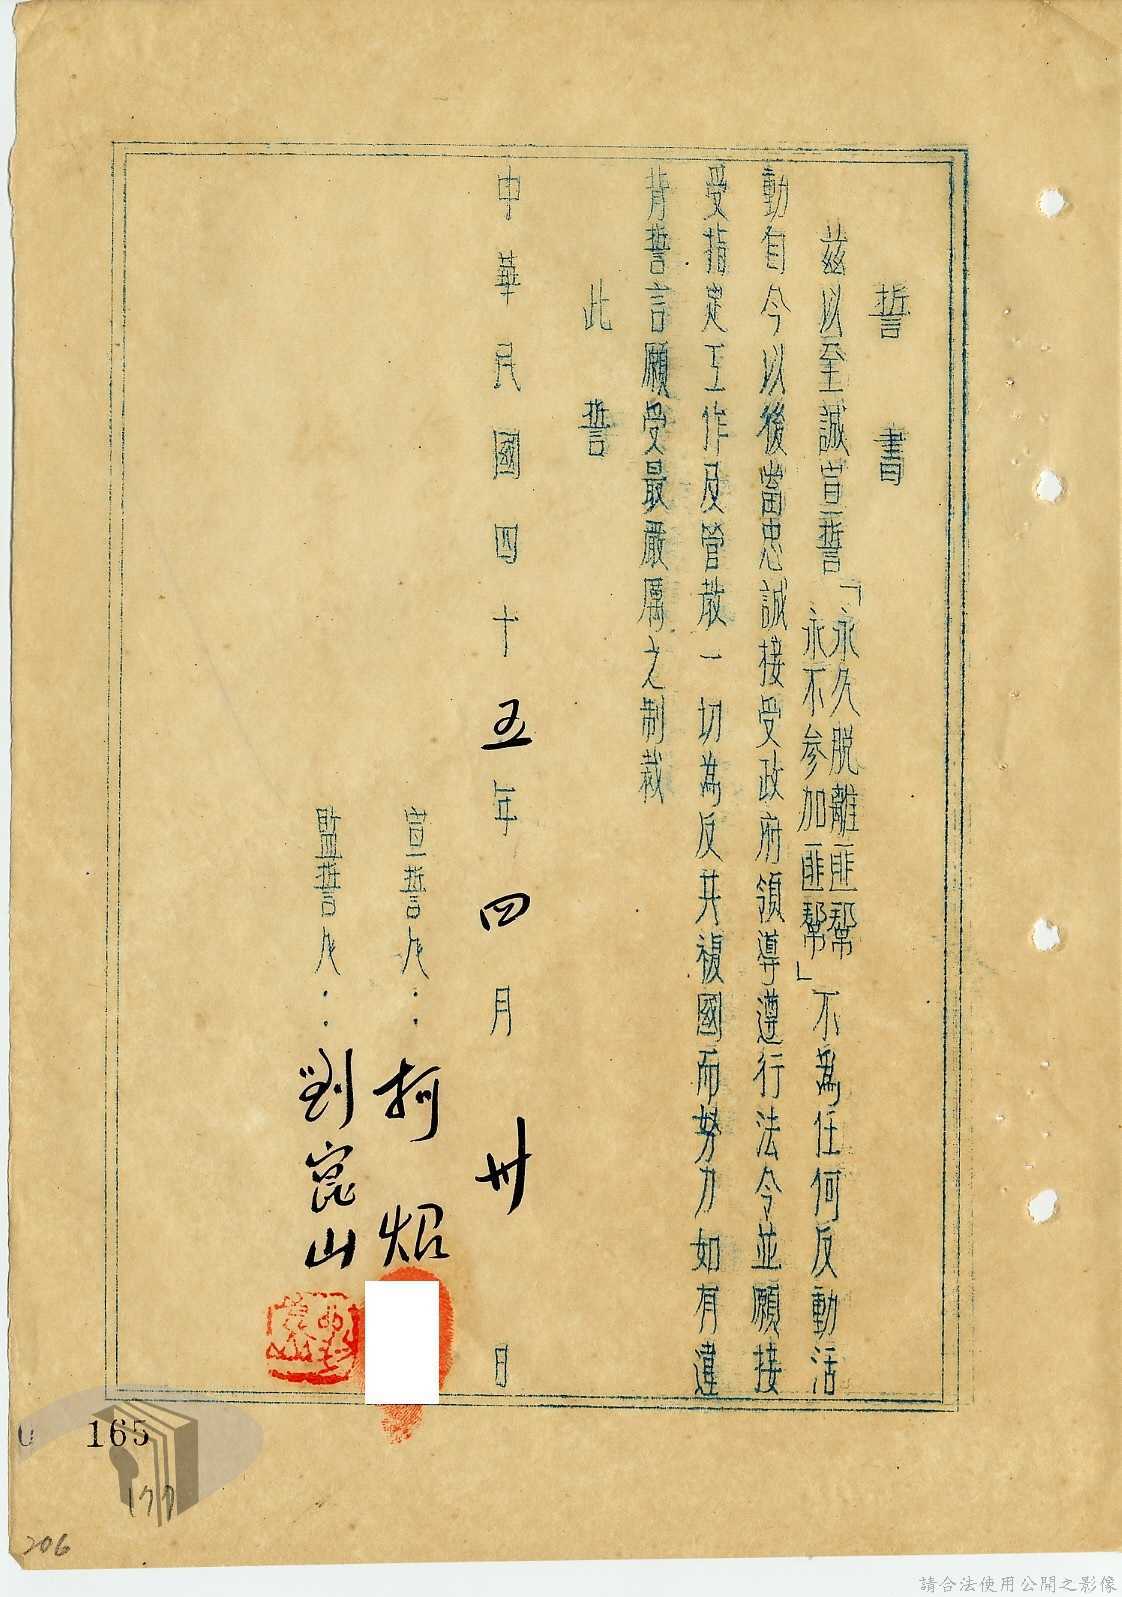 誓書
茲以至誠宣誓「永久脫離匪幫
永不參加匪幫」不為任何反動活
動自今以後當忠誠接受政府領導遵行法令並願接
受指定工作及管教一切為反共復國而努力如有違
背誓言願受最嚴厲之制裁
此誓
中華民國四十五年四月卅日
宣誓人：柯炤
監誓人：劉崑山
165
177
206
請合法使用公開之影像